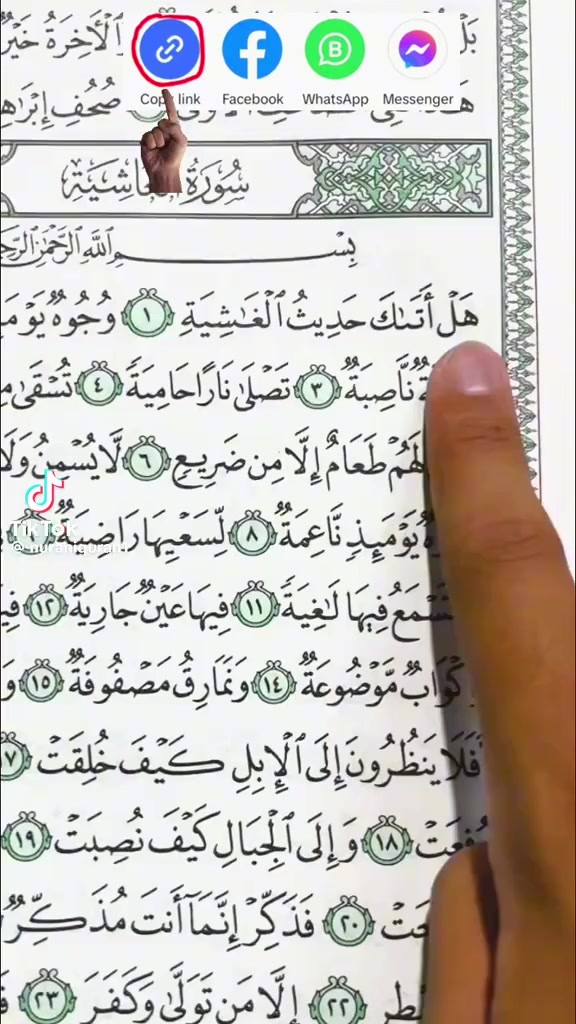 بَلْ
ٱلْأَخِرَةُ خَيْرٌ
Copy link Facebook WhatsApp Messenger
صُحُفِ
سُورَةُ الغَاشِيَةِ
بِسْمِ ٱللَّهِ ٱلرَّحْمَٰنِ
هَلْ أَتَىٰكَ حَدِيثُ ٱلْغَٰشِيَةِ ١ وُجُوهٌ
نَّاصِبَةٌ ٣ تَصْلَىٰ نَارًا حَامِيَةً ٤ تُسْقَىٰ
لَهُمْ طَعَامٌ إِلَّا مِن ضَرِيعٍ ٦ لَّا يُسْمِنُ وَلَا
يَوْمَئِذٍ نَّاعِمَةٌ ٨ لِّسَعْيِهَا رَاضِيَةٌ
TikTok
تَسْمَعُ فِيهَا لَٰغِيَةً ١١ فِيهَا عَيْنٌ جَارِيَةٌ ١٢
مَّوْضُوعَةٌ ١٤ وَنَمَارِقُ مَصْفُوفَةٌ ١٥
أَفَلَا يَنظُرُونَ إِلَى ٱلْإِبِلِ كَيْفَ خُلِقَتْ
١٨ وَإِلَى ٱلْجِبَالِ كَيْفَ نُصِبَتْ ١٩
٢٠ فَذَكِّرْ إِنَّمَآ أَنتَ مُذَكِّرٌ
٢٢ إِلَّا مَن تَوَلَّىٰ وَكَفَرَ ٢٣